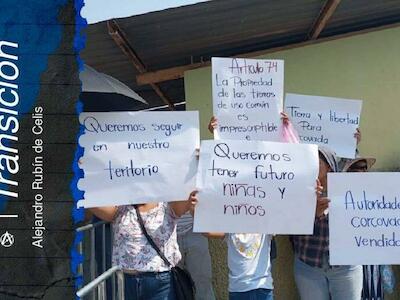 Transición
Alejandro Rubín de Celis
Artículo 74
LA Propiedad
de las tierras
de uso común
es
impresceptible
e
Tierra y libertad
Para
Corcovada
Queremos seguir
en nuestro
territorio
Queremos
tener futuro
niñas y
niños
Autoridades
Corcovada
Vendida